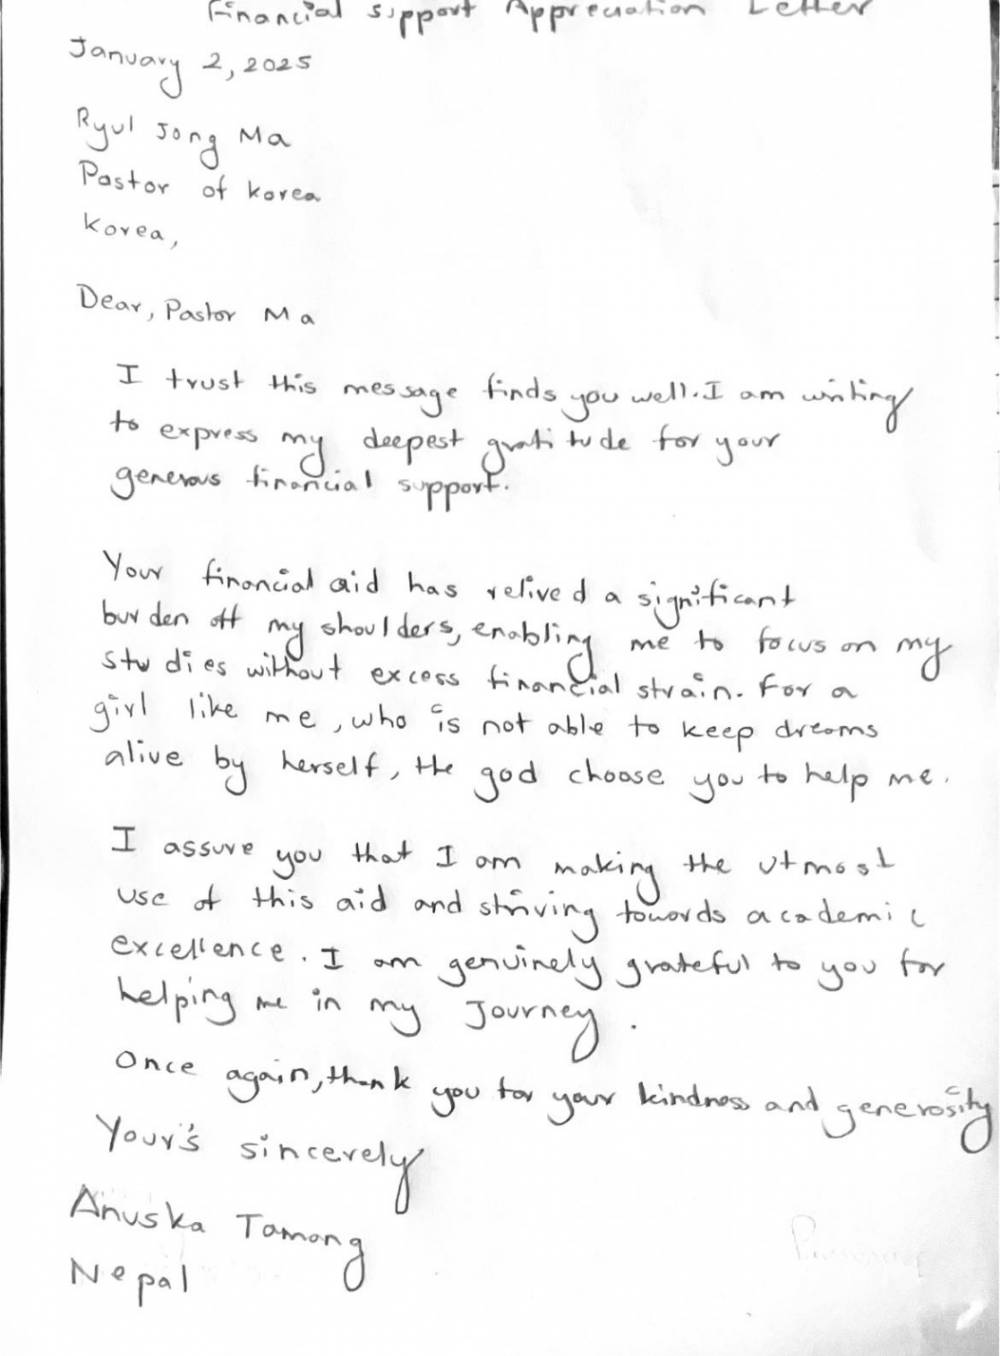 Financial support Appreciation Letter
January 2, 2025
Ryul Jong Ma
Pastor of korea
Korea,
Dear, Pastor Ma
I trust this message finds you well. I am writing
to express my deepest gratitude for your
generous financial support.
Your financial aid has relived a significant
burden off my shoulders, enabling me to focus on my
studies without excess financial strain. For a
girl like me, who is not able to keep dreams
alive by herself, the god choose you to help me.
I assure you that I am making the utmost
use of this aid and striving towards academic
excellence. I am genuinely grateful to you for
helping me in my Journey.
Once again, thank you for your kindness and generosity
Your's sincerely
Anuska Tamang
Nepal